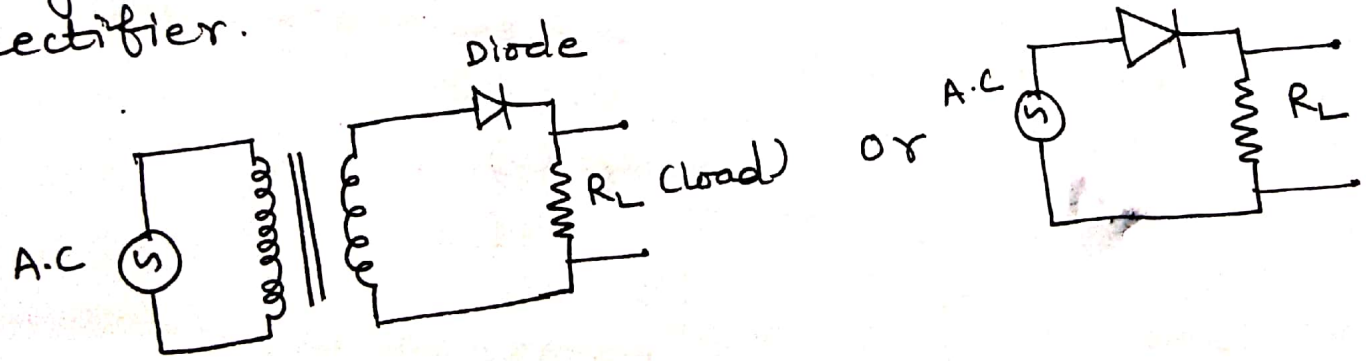 ectifier.
Diode
A.C
RL (load)
or
A.C
RL